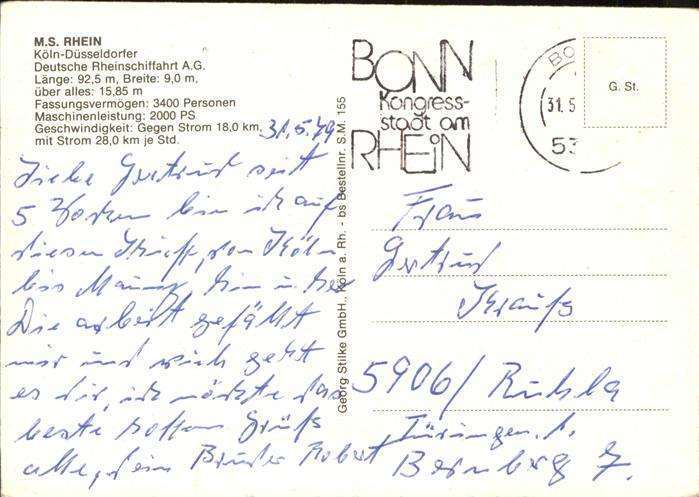 M.S. RHEIN
Köln-Düsseldorfer
Deutsche Rheinschiffahrt A.G.
Länge: 92,5 m, Breite: 9,0 m,
über alles: 15,85 m
Fassungsvermögen: 3400 Personen
Maschinenleistung: 2000 PS
Geschwindigkeit: Gegen Strom 18,0 km,
mit Strom 28,0 km je Std.
31.5.79
Liebe Gertrud seit
5 Wochen bin ich auf
diesen Schiff, von Köln
bis Mainz, hin u. her
Die arbeit gefällt
mir und wich geht
es dir, ich möchte das
beste hoffen Grüß
alle, dein Bruder Robert
Georg Stilke GmbH., Köln a. Rh. - bs Bestellnr. S.M. 155
BONN
Kongress-
stadt am
RHEIN
BO
31.5
53
G. St.
Frau
Gertrud
Strauß
5906/ Ruhla
Türingen.
Bernberg 7.